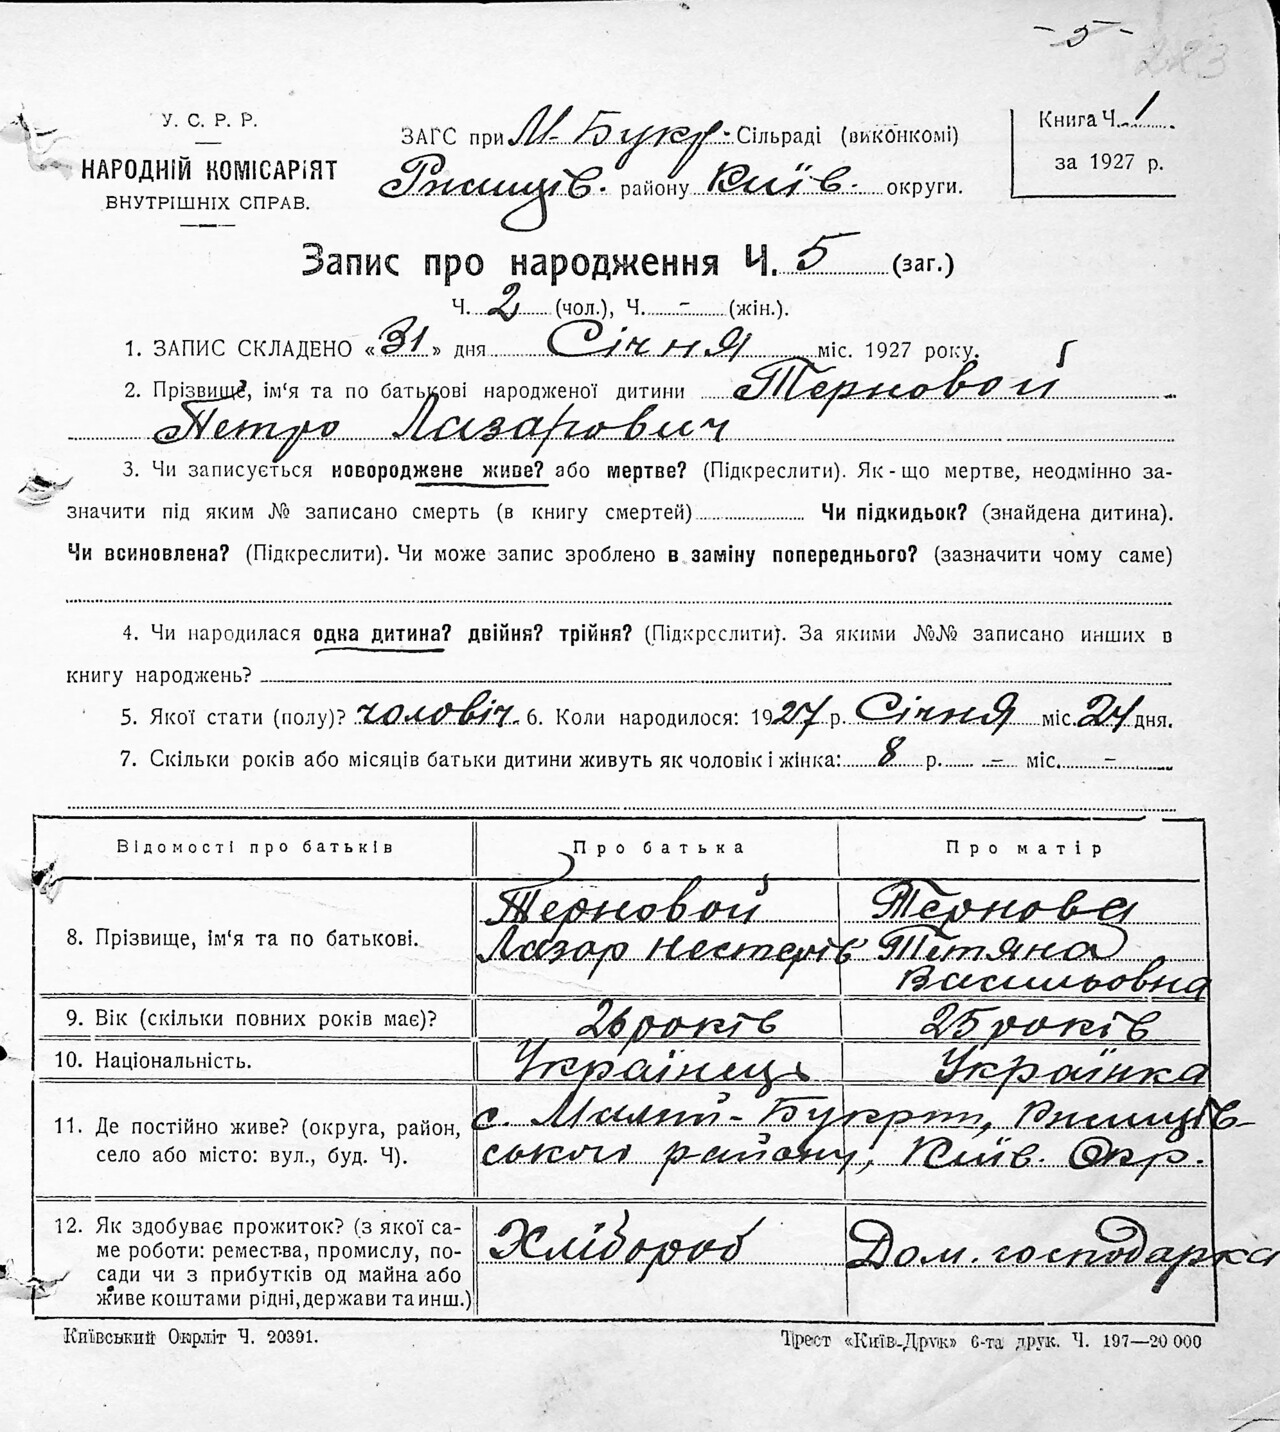 - 5 -
223
У. С. Р. Р.
НАРОДНІЙ КОМІСАРІЯТ
ВНУТРІШНІХ СПРАВ.
ЗАГС при М-Букр. Сільраді (виконкомі)
Ржищів. району Київ. округи.
Книга Ч. 1
за 1927 р.
Запис про народження Ч. 5 (заг.)
Ч. 2 (чол.), Ч. - (жін.).
1. ЗАПИС СКЛАДЕНО «31» дня Січня міс. 1927 року.
2. Прізвище, ім'я та по батькові народженої дитини Терновой
Петро Лазарович
3. Чи записується новороджене живе? або мертве? (Підкреслити). Як-що мертве, неодмінно за-
значити під яким № записано смерть (в книгу смертей) Чи підкидьок? (знайдена дитина).
Чи всиновлена? (Підкреслити). Чи може запис зроблено в заміну попереднього? (зазначити чому саме)
4. Чи народилася одка дитина? двійня? трійня? (Підкреслити). За якими №№ записано инших в
книгу народжень?
5. Якої стати (полу)? чоловіч. 6. Коли народилося: 1927 р. Січня міс. 24 дня.
7. Скільки років або місяців батьки дитини живуть як чоловік і жінка: 8 р. - міс. -
Відомості про батьків Про батька Про матір
8. Прізвище, ім'я та по батькові.
Терновой
Лазар Нестерів
Тернова
Тетяна
Васильовна
9. Вік (скільки повних років має)? 26 років 25 років
10. Національність. Українець Українка
11. Де постійно живе? (округа, район,
село або місто: вул., буд. Ч).
с. Малий-Букрин, Ржищів-
ського району, Київ. Окр.
12. Як здобуває прожиток? (з якої са-
ме роботи: ремества, промислу, по-
сади чи з прибутків од майна або
живе коштами рідні, держави та инш.)
Хлібороб
Дом. господарка
Київський Окрліт Ч. 20391.
Трест «Київ-Друк» 6-та друк. Ч. 197—20 000